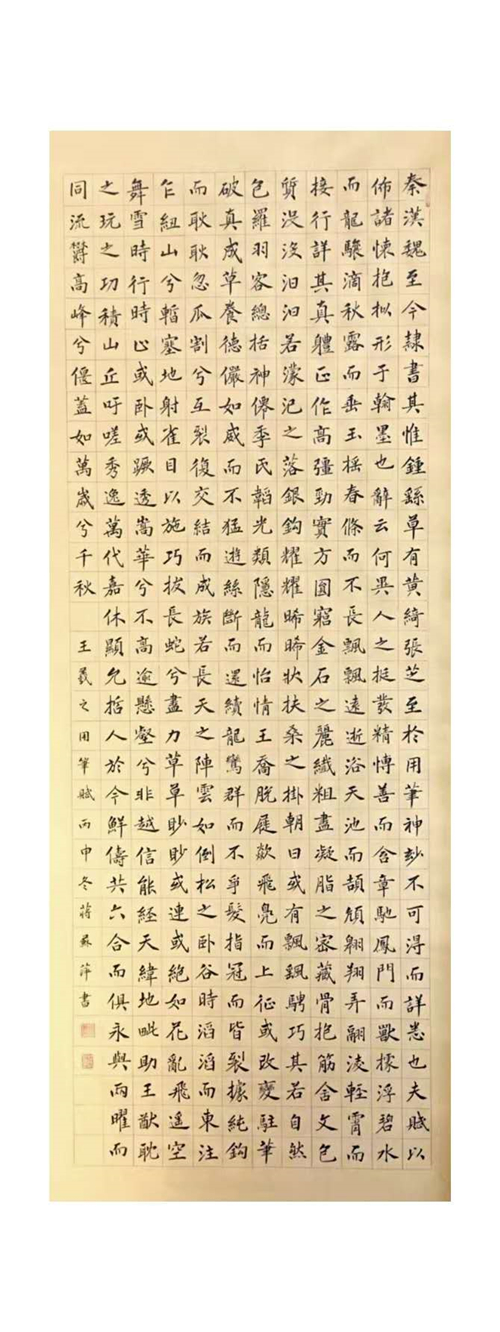 秦漢魏至今隸書其惟鍾繇草有黃綺張芝至於用筆神妙不可得而詳悉也夫賦以
佈諸懷抱拟形于翰墨也辭云何異人之挺發精博善而含章馳鳳門而獸據浮碧水
而龍驤滴秋露而垂玉摇春條而不長飄飄遠逝浴天池而頡頏翱翔弄翮淩輕霄而
接行詳其真體正作高彊勁實方圓窮金石之麗纖粗盡凝脂之密藏骨抱筋含文包
質沒沒汩汩若濛汜之落銀鉤耀耀晞晞狀扶桑之掛朝日或有飄飖騁巧其若自然
包羅羽客總括神僊季氏韜光類隱龍而怡情王喬脫屣欻飛鳧而上征或改變駐筆
破真成草養德儼如威而不猛遊絲斷而還續龍鸞群而不爭髮指冠而皆裂據純鈎
而耿耿忽瓜割兮互裂復交結而成族若長天之陣雲如倒松之卧谷時滔滔而東注
乍紐山兮暫塞地射雀目以施巧拔長蛇兮盡力草草眇眇或連或絕如花亂飛遥空
舞雪時行時止或卧或蹶透嵩華兮不高逾懸壑兮非越信能經天緯地毗助王猷耽
之玩之功積山丘吁嗟秀逸萬代嘉休顯允哲人於今鮮儔共六合而俱永與兩曜而
同流鬱高峰兮偃蓋如萬歲兮千秋 王羲之用筆賦丙申冬蔣蘇萍書